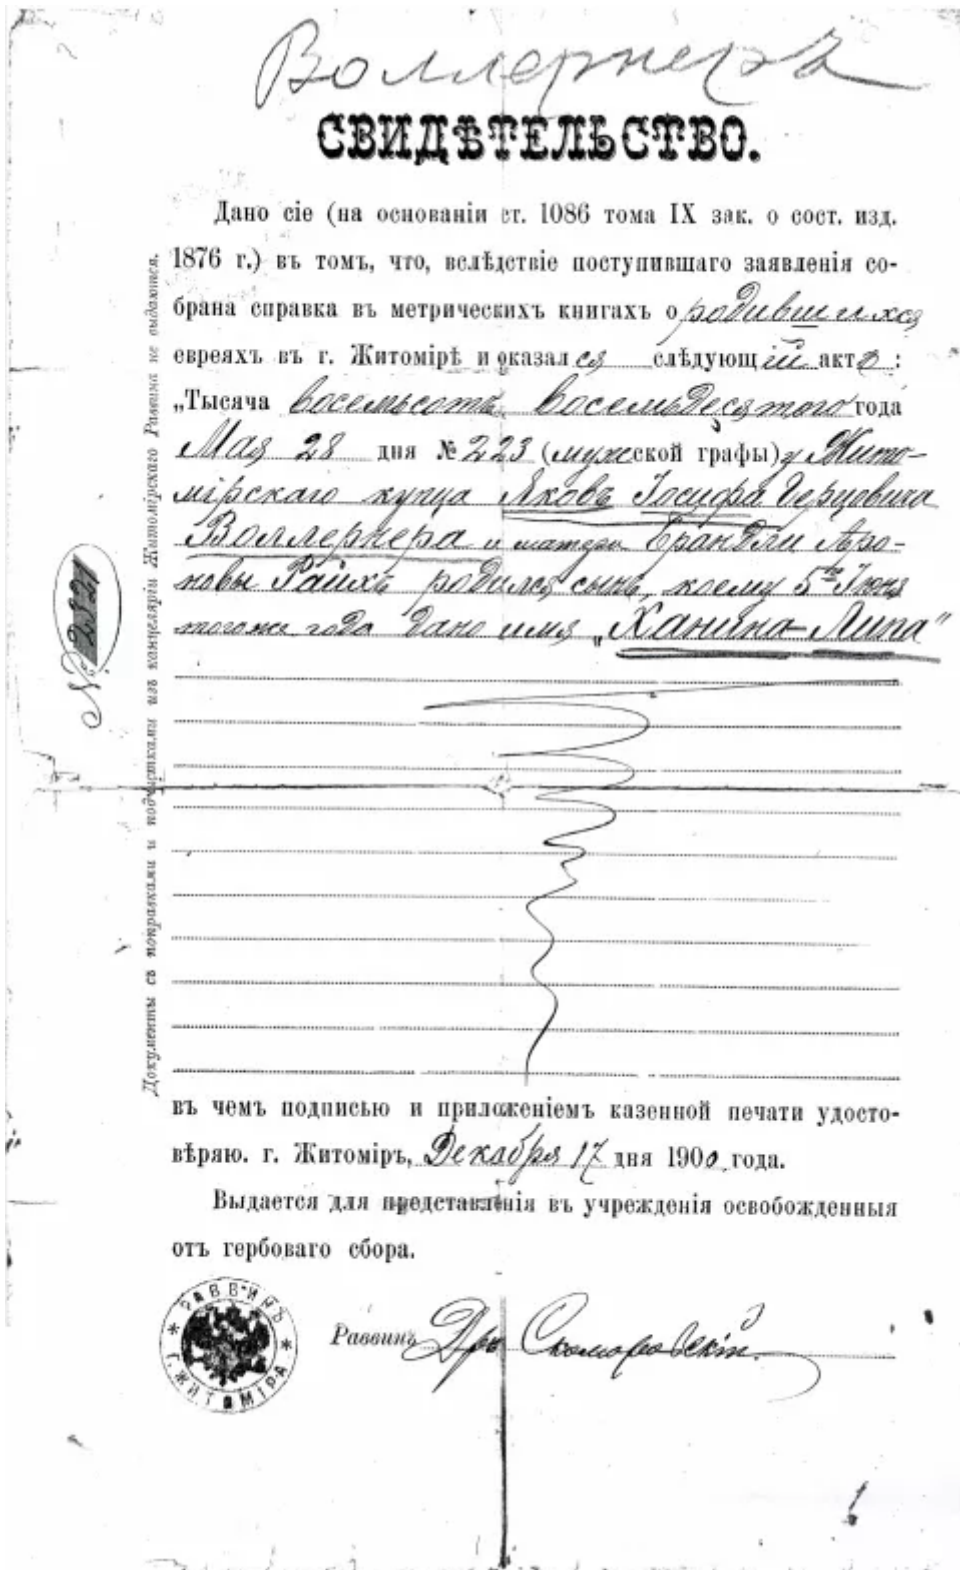 Воллернеръ
СВИДѢТЕЛЬСТВО.
Дано сіе (на основаніи ст. 1086 тома IX зак. о сост. изд.
1876 г.) въ томъ, что, вслѣдствіе поступившаго заявленія со-
брана справка въ метрическихъ книгахъ о родившихся
евреяхъ въ г. Житомірѣ и оказался слѣдующій актъ:
„Тысяча восемьсотъ восемьдесятого года
Мая 28 дня № 223 (мужской графы) у Жито-
мірскаго купца Яковъ Іосифа Герцовича
Воллернера и матери Брандли Аро-
новы Райхъ родился сынъ, коему 5го Іюня
того же года дано имя „Ханина-Липа"
въ чемъ подписью и приложеніемъ казенной печати удосто-
вѣряю. г. Житоміръ, Декабря 17 дня 1900 года.
Выдается для представленія въ учрежденія освобожденныя
отъ гербоваго сбора.
Раввинъ Др Скоморовскій
РАВВИНЪ * Г. ЖИТОМІРА *
Документы съ поправками и подчистками изъ канцеляріи Житомірскаго Раввина не выдаются.
№ 2321